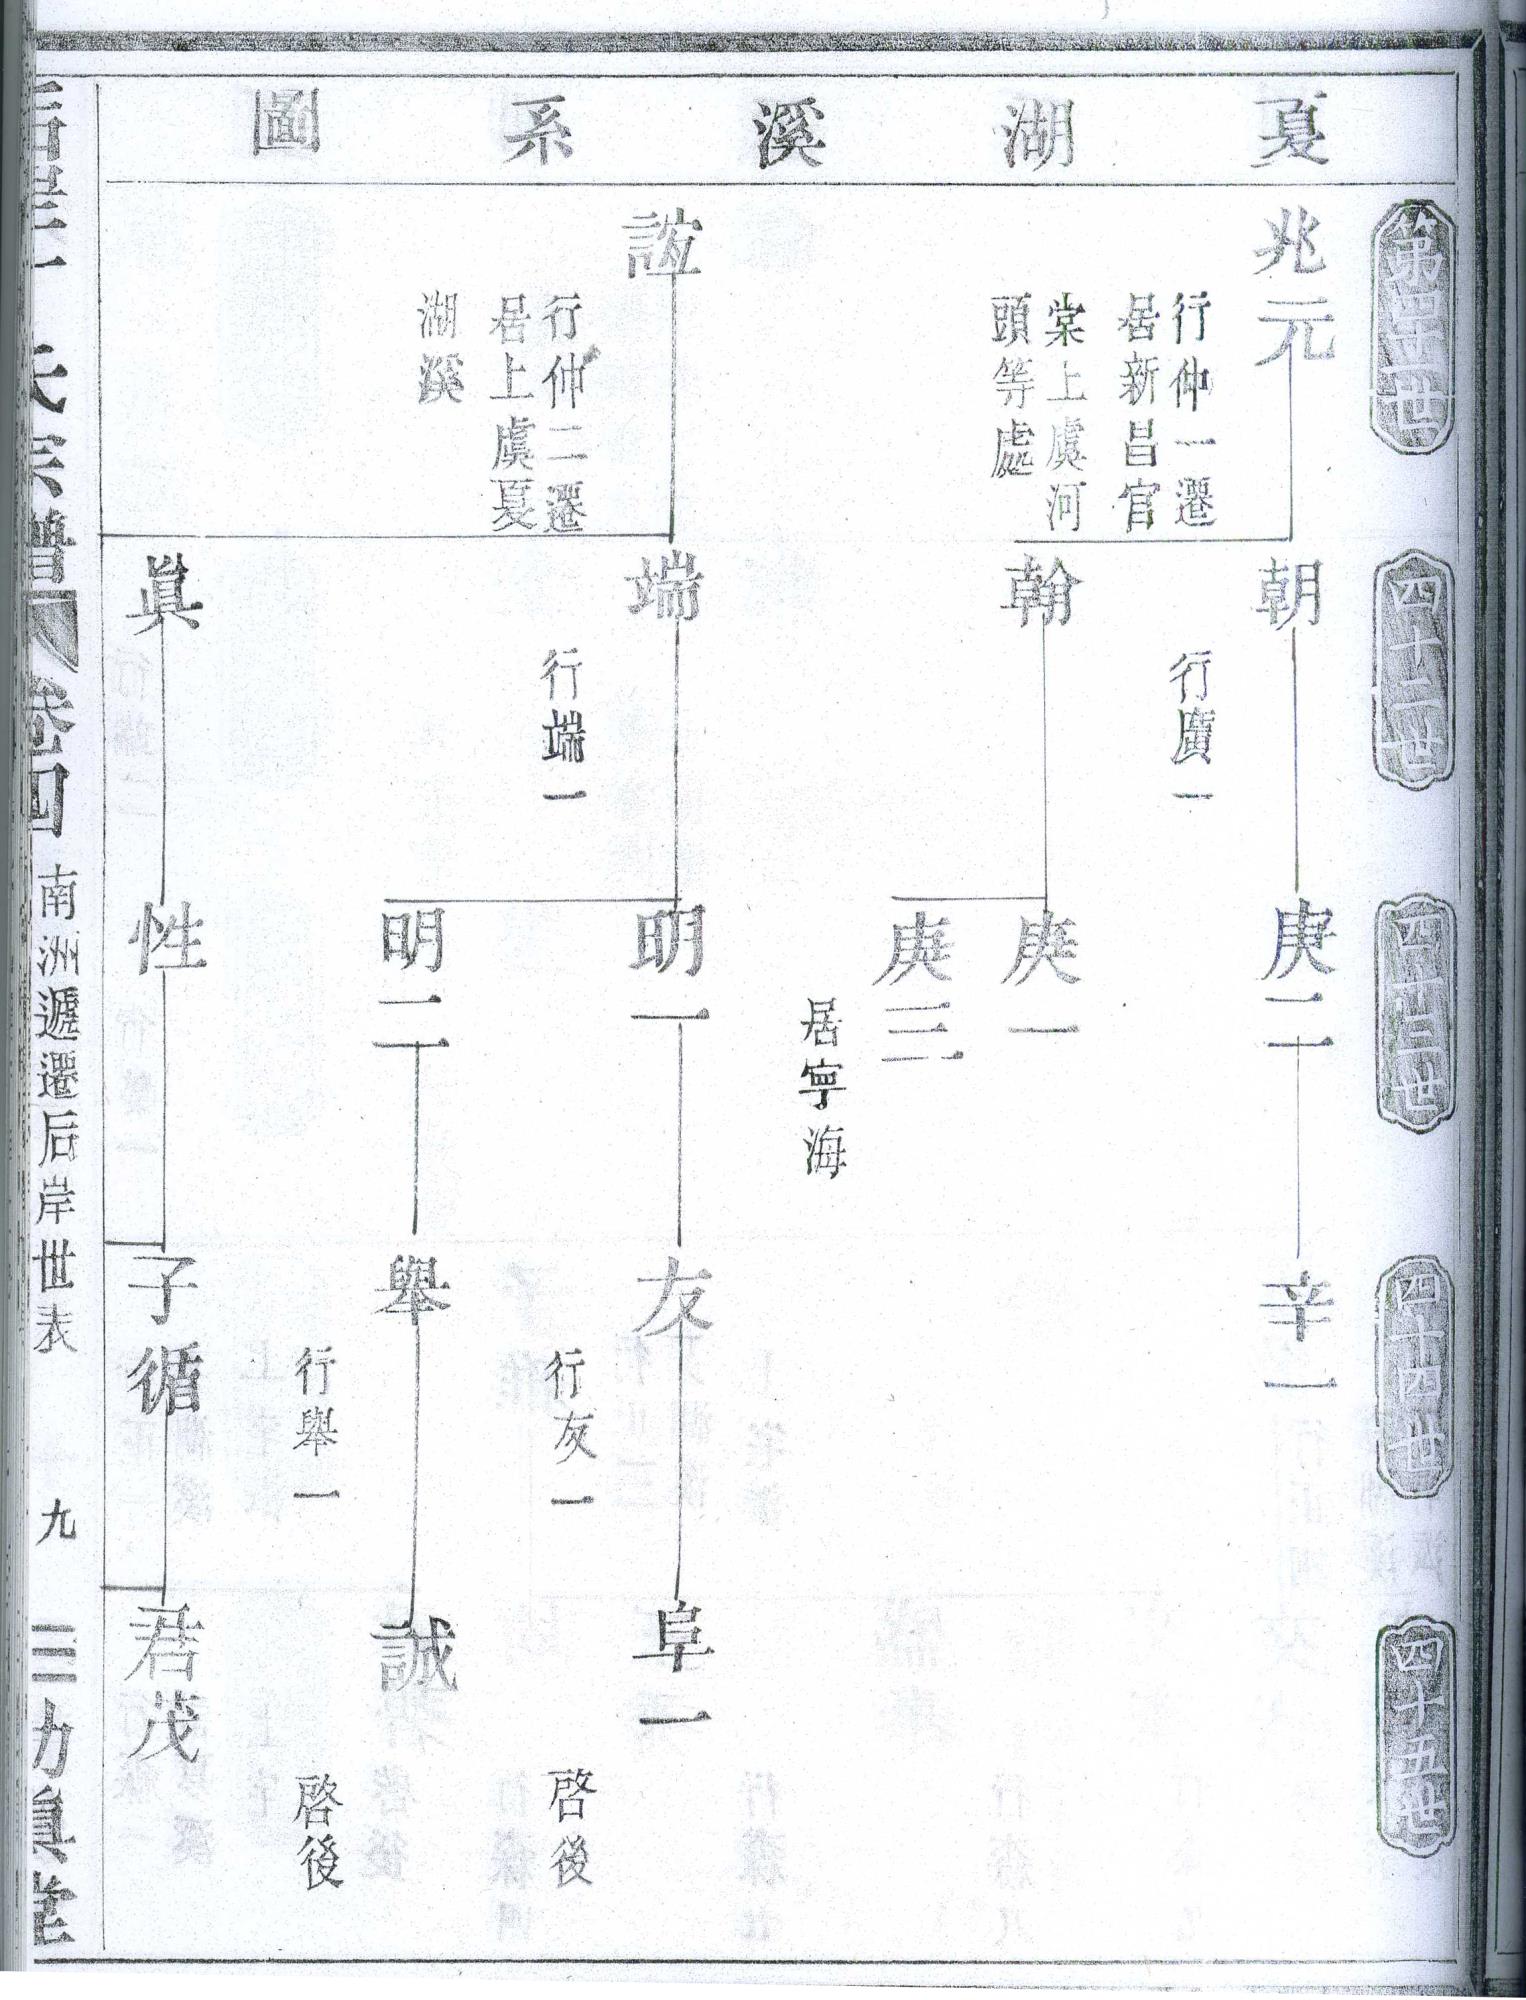 夏湖溪系圖
第四十一世
兆元
行仲一遷
居新昌官
棠上虞河
頭等處
誼
行仲二遷
居上虞夏
湖溪
四十二世
朝
行廣一
翰
端
行端一
眞
四十三世
庚二
庚一
庚三
居寧海
明一
明二
性
四十四世
辛一
友
行友一
舉
行舉一
子循
四十五世
阜一
啓後
誠
啓後
君茂
氏宗譜
卷四
南洲遞遷后岸世表
九
三力眞堂